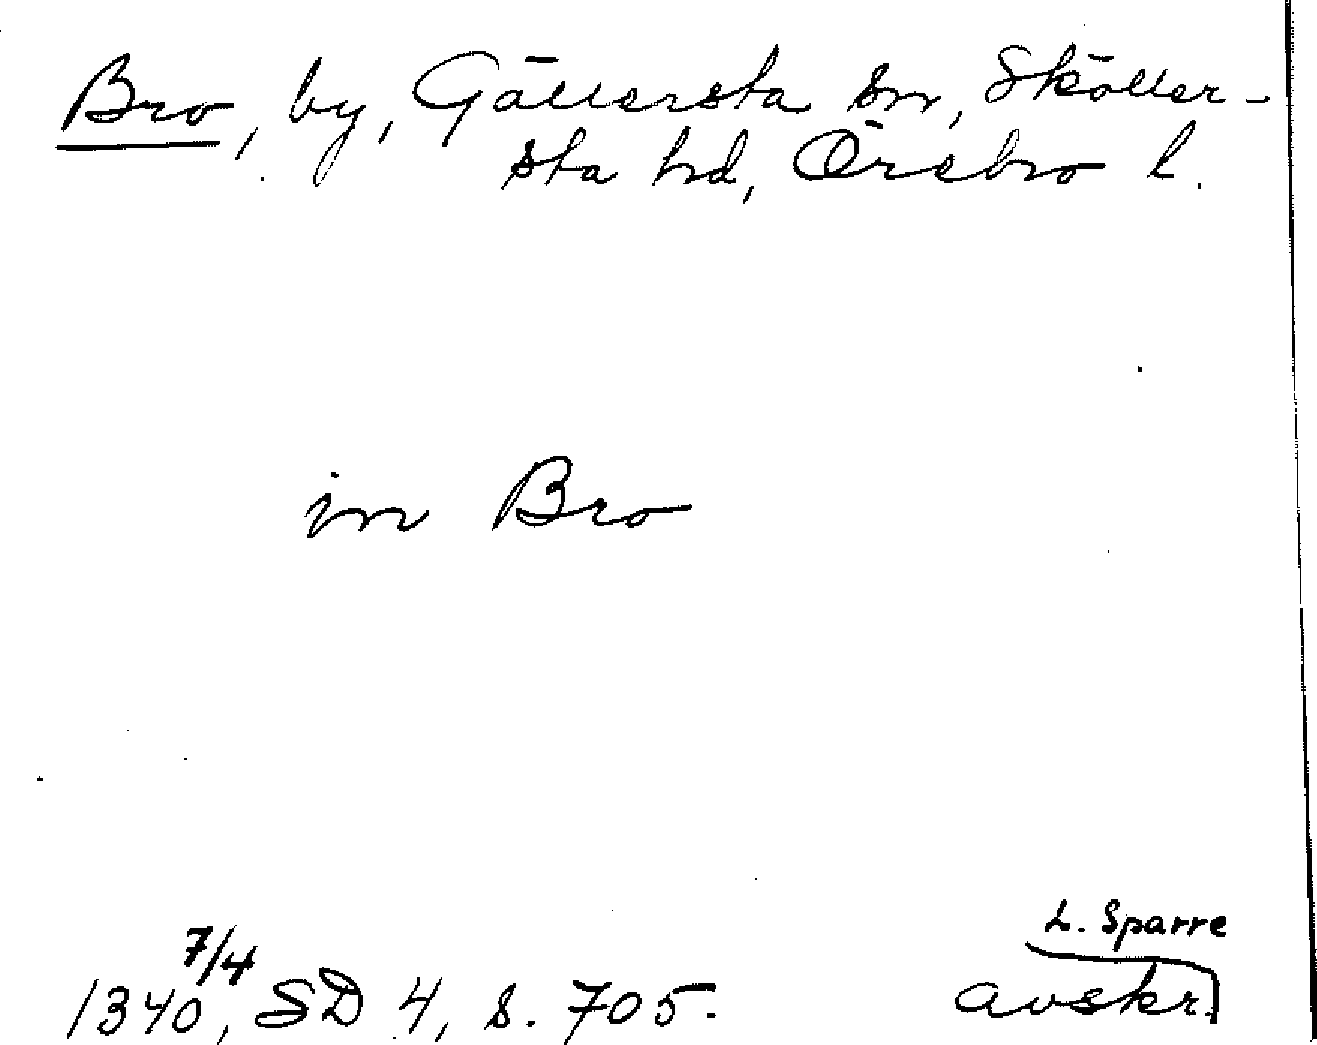 Bro, by, Gällersta sn, Sköller-
sta hd, Örebro l.
in Bro
L. Sparre
7/4
1340, SD 4, s. 705.
avskr.